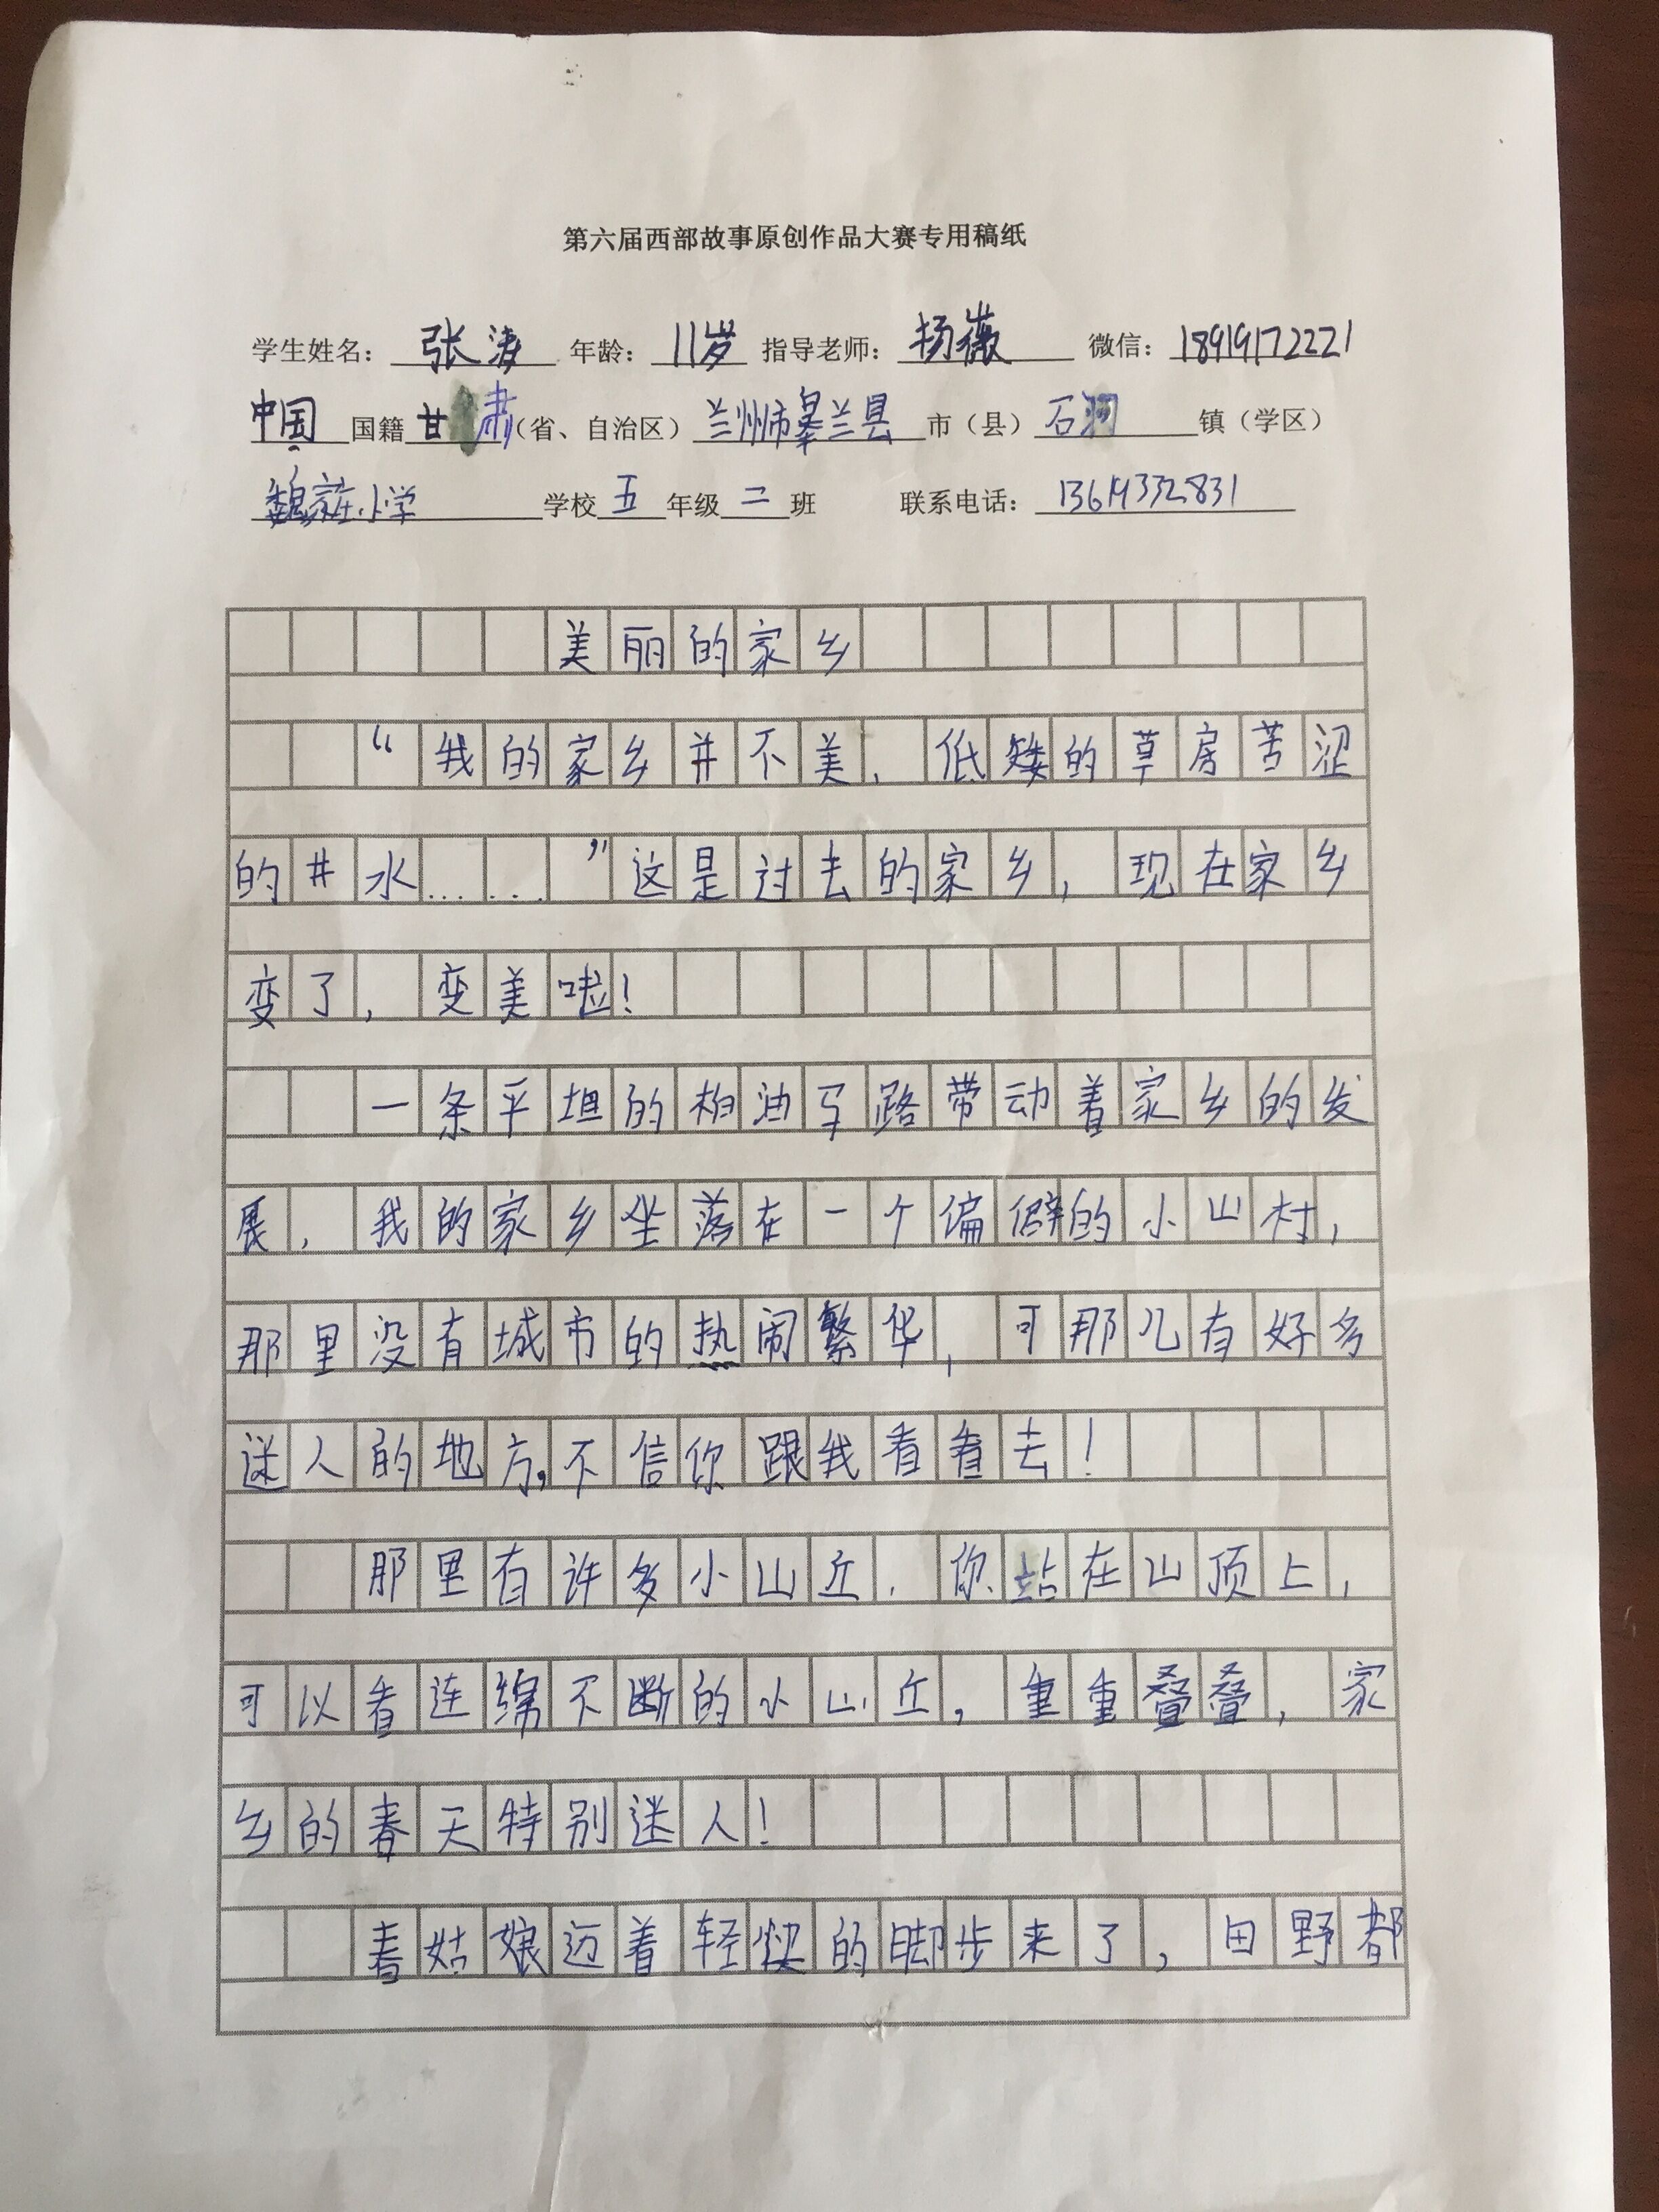 第六届西部故事原创作品大赛专用稿纸
学生姓名：张涛 年龄：11岁 指导老师：杨薇 微信：18919172221
中国国籍甘肃（省、自治区）兰州市皋兰县市（县）石洞镇（学区）
魏家庄小学学校五年级二班 联系电话：13619332831
美丽的家乡
“我的家乡并不美，低矮的草房苦涩
的井水……”这是过去的家乡，现在家乡
变了，变美啦！
一条平坦的柏油马路带动着家乡的发
展，我的家乡坐落在一个偏僻的小山村，
那里没有城市的热闹繁华，可那儿有好多
迷人的地方，不信你跟我看看去！
那里有许多小山丘，你站在山顶上，
可以看连绵不断的小山丘，重重叠叠，家
乡的春天特别迷人！
春姑娘迈着轻快的脚步来了，田野都